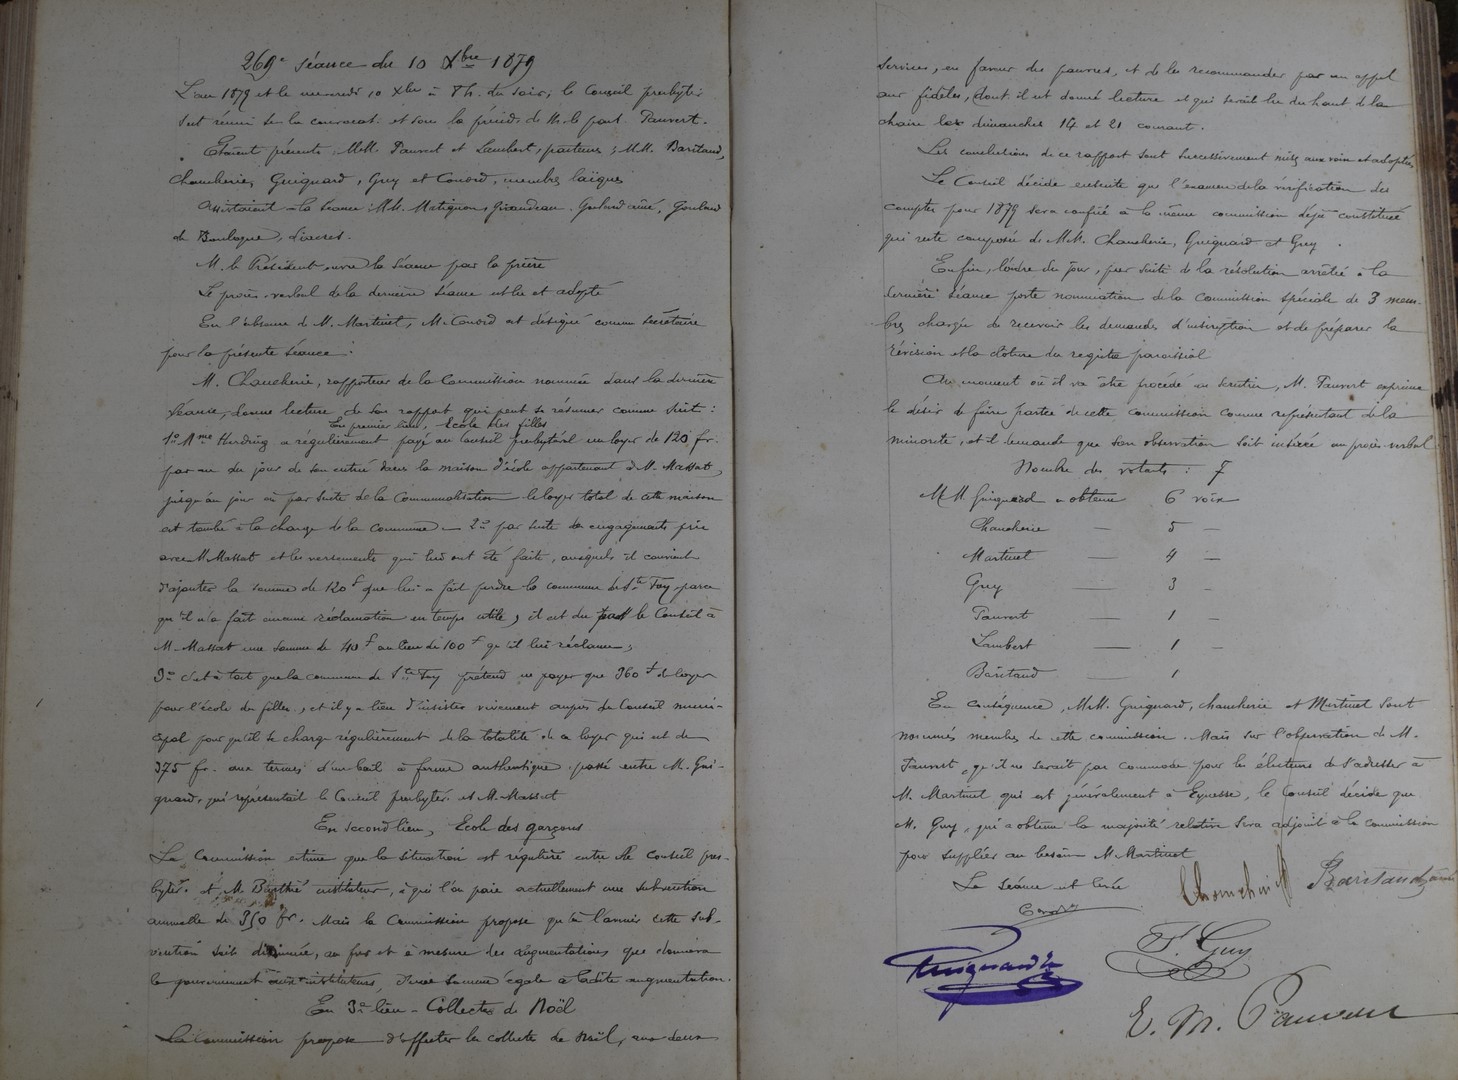 269e séance du 10 Xbre 1879
L'an 1879 et le mercredi 10 Xbre à 8 h. du soir, le Conseil presbytér.
s'est réuni sur la convocat. et sous la présid. de M. le past. Pauvert.
Étaient présents : MM. Pauvert et Lambert, pasteurs ; MM. Baritaud,
Chaucherie, Guignard, Guy et Couord, membres laïques
Assistaient à la séance : MM. Matignon, Girandeau, Goulard aîné, Goulard
de Boulogne, diacres.
M. le Président ouvre la séance par la prière
Le procès-verbal de la dernière séance est lu et adopté
En l'absence de M. Martinet, M. Couord est désigné comme secrétaire
pour la présente séance.
M. Chaucherie, rapporteur de la Commission nommée dans la dernière
séance, donne lecture de son rapport qui peut se résumer comme suit :
En premier lieu, Ecole des filles
1o Mme Herding a régulièrement payé au Conseil presbytéral un loyer de 120 fr.
par an du jour de son entrée dans la maison d'école appartenant à M. Massat,
jusqu'au jour où par suite de la Communalisation le loyer total de cette maison
est tombé à la charge de la commune — 2o par suite des engagements pris
avec M. Massat et les versements qui lui ont été faits, auxquels il convient
d'ajouter la somme de 120 f que lui a fait perdre la commune de Ste Foy, parce
qu'il n'a fait aucune réclamation en temps utile, il est du par le Conseil à
M. Massat une somme de 40 f au lieu de 100 f qu'il lui réclame ;
3o c'est à tort que la commune de Ste Foy prétend ne payer que 360 f de loyer
pour l'école des filles, et il y a lieu d'insister vivement auprès du Conseil muni-
cipal pour qu'il se charge régulièrement de la totalité de ce loyer qui est de
375 fr. aux termes d'un bail à ferme authentique passé entre M. Gui-
gnard, qui représentait le Conseil presbytér. et M. Massat
En second lieu, Ecole des garçons
La Commission estime que la situation est régulière entre le Conseil pres-
bytér. et M. Barthé instituteur, à qui l'on paie actuellement une subvention
annuelle de 350 fr. Mais la Commission propose qu'à l'avenir cette sub-
vention soit diminuée, au fur et à mesure des augmentations que donnera
le gouvernement aux instituteurs, d'une somme égale à ladite augmentation.
En 3e lieu - Collectes de Noël
La Commission propose d'affecter les collectes de Noël, aux deux
services, en faveur des pauvres, et de les recommander par un appel
aux fidèles, dont il est donné lecture et qui serait lu du haut de la
chaire les dimanches 14 et 21 courant.
Les conclusions de ce rapport sont successivement mises aux voix et adoptées
Le Conseil décide ensuite que l'examen de la vérification des
comptes pour 1879 sera confié à la même commission déjà constituée
qui reste composée de MM. Chaucherie, Guignard et Guy.
Enfin, l'ordre du jour, par suite de la résolution arrêtée à la
dernière séance porte nomination de la Commission spéciale de 3 mem-
bres chargée de recevoir les demandes d'inscription et de préparer la
révision et la clôture du registre paroissial
Au moment où il va être procédé au scrutin, M. Pauvert exprime
le désir de faire partie de cette commission comme représentant de la
minorité, et il demande que son observation soit insérée au procès-verbal
Nombre des votants : 7
MM. Guignard a obtenu 6 voix
Chaucherie — 5 —
Martinet — 4 —
Guy — 3 —
Pauvert — 1 —
Lambert — 1 —
Baritaud — 1
En conséquence, MM. Guignard, Chaucherie et Martinet sont
nommés membres de cette commission. Mais sur l'observation de M.
Pauvert, qu'il ne serait pas commode pour les électeurs de s'adresser à
M. Martinet qui est généralement à Eynesse, le Conseil décide que
M. Guy, qui a obtenu la majorité relative sera adjoint à la commission
pour suppléer au besoin M. Martinet
La séance est levée
Chaucherie
Baritaud aîné
Couord
Guignard
F. Guy
E. M. Pauvert